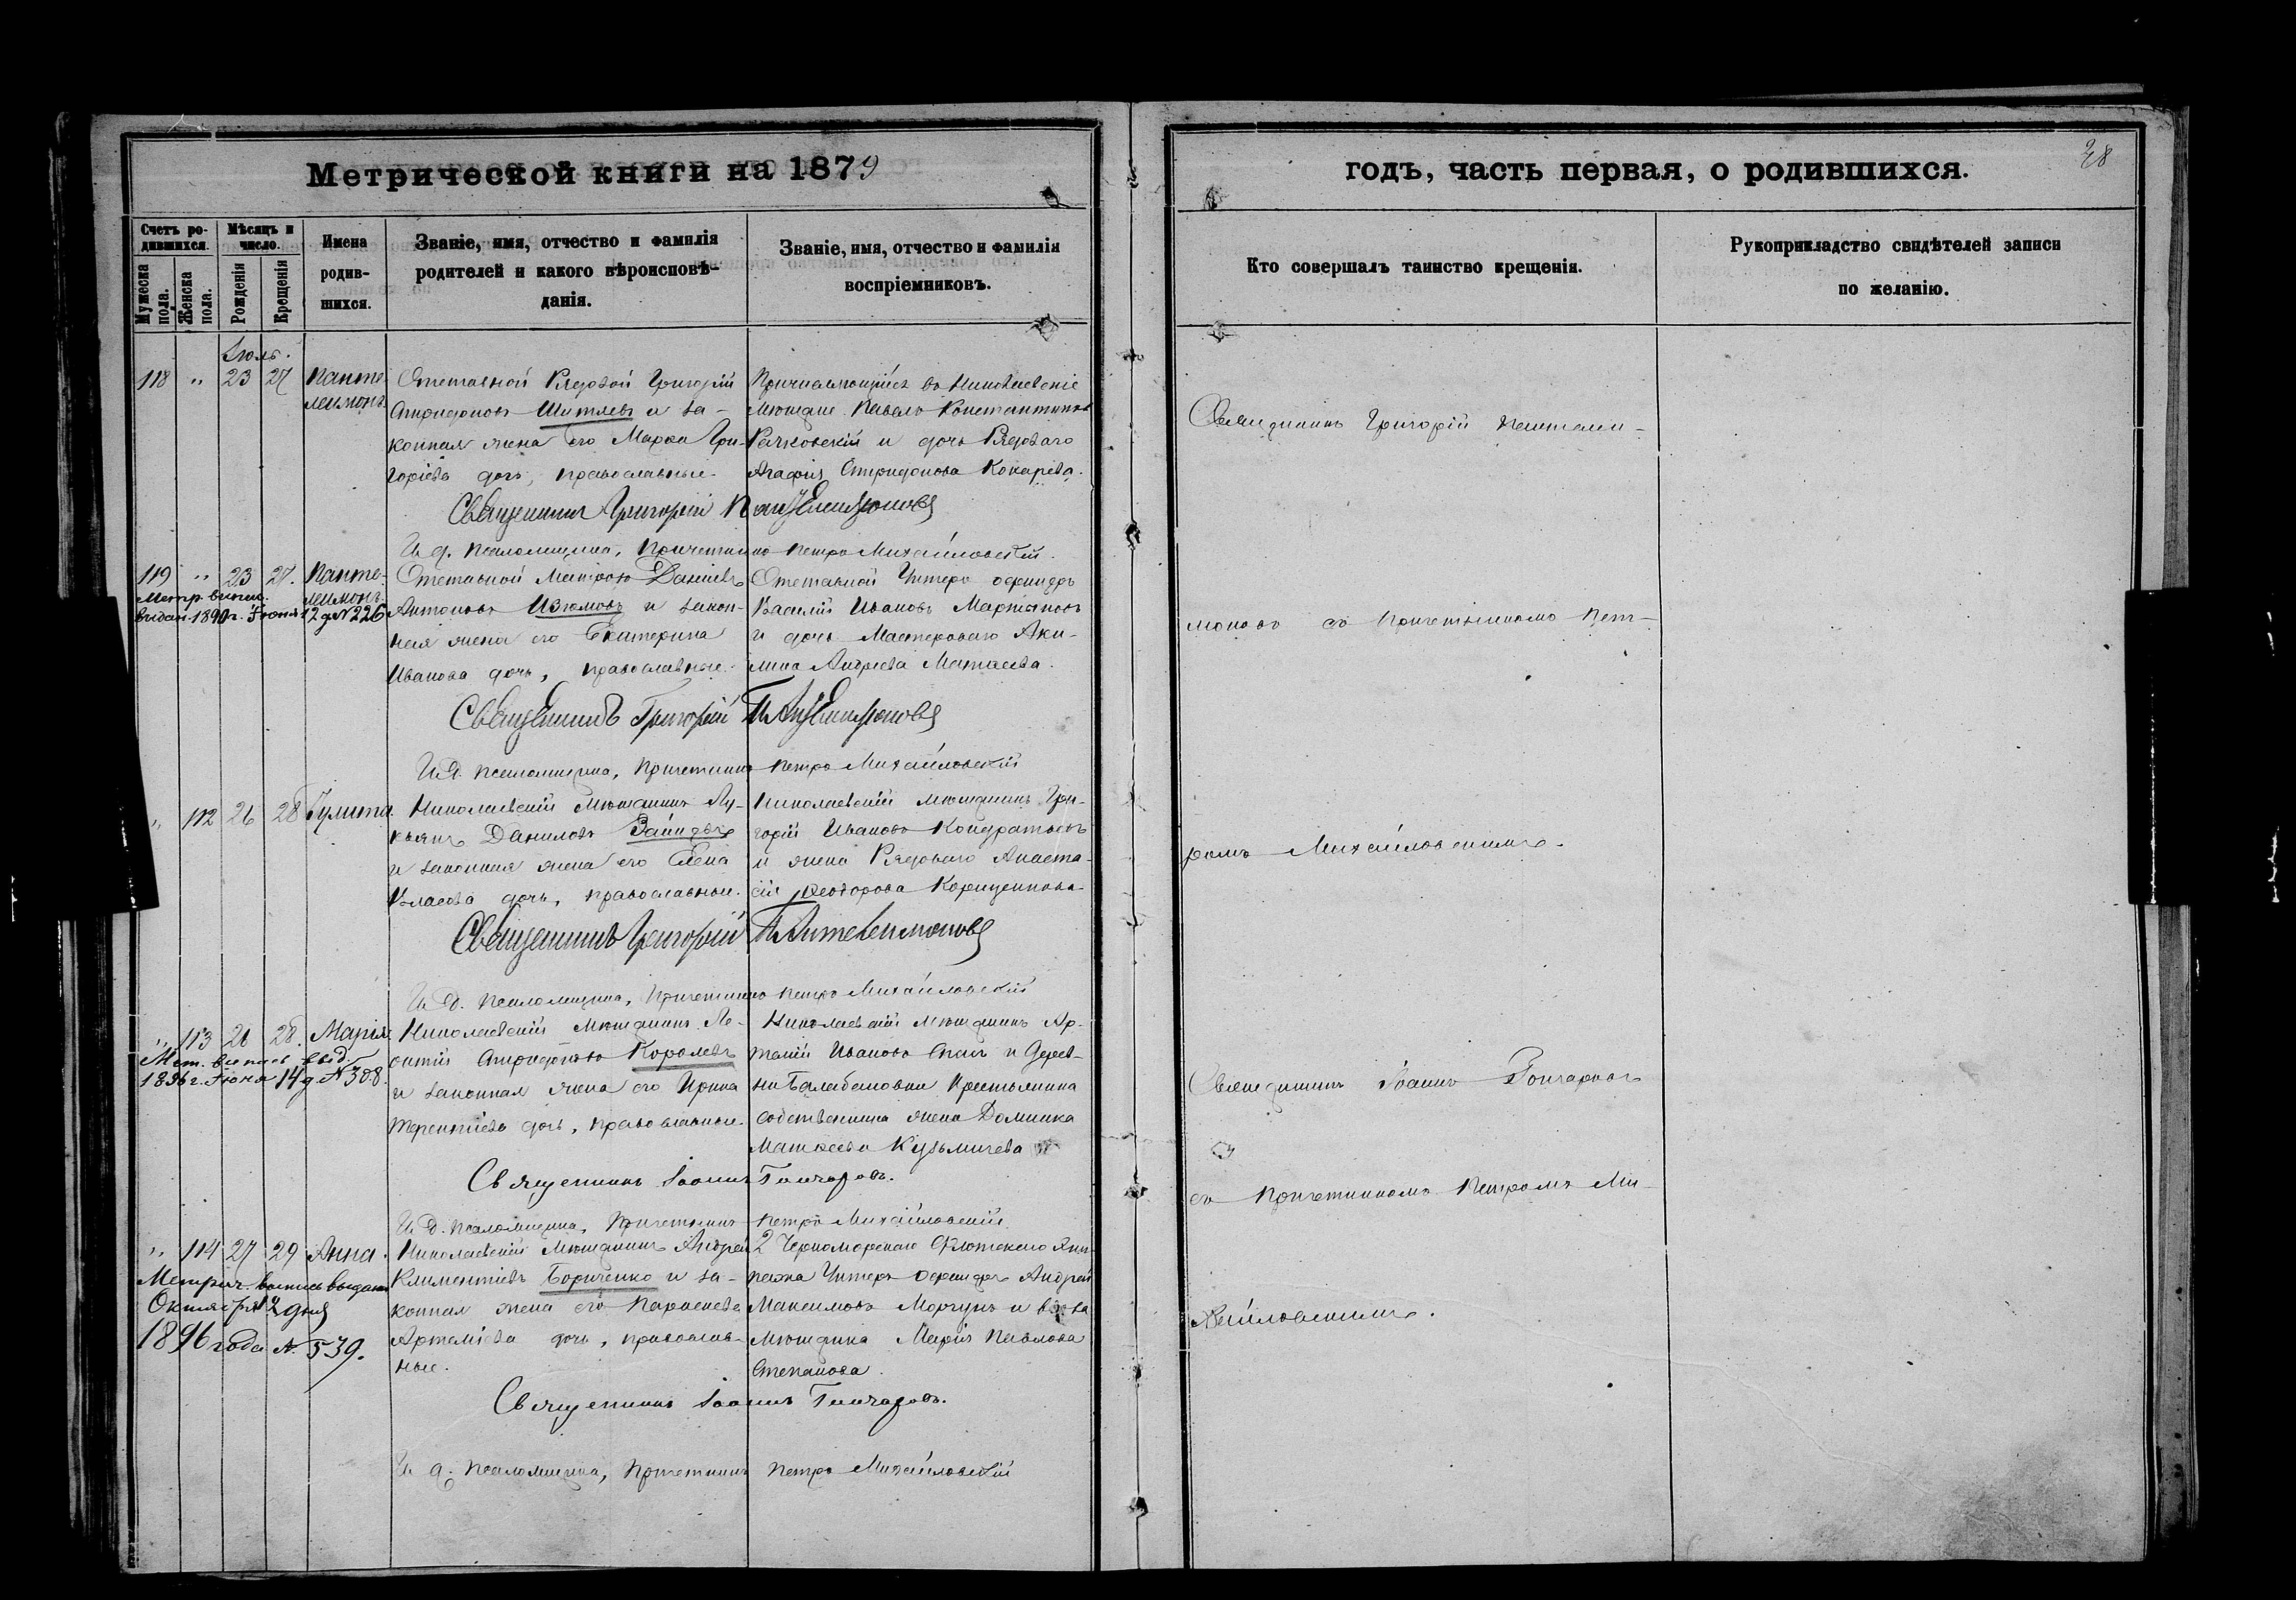 Метрической книги на 1879
годъ, часть первая, о родившихся.
28
Счетъ ро-
дившихся.
Мужеска пола.
Женска пола.
Мѣсяцъ и
число.
Рожденія
Крещенія
Имена
родив-
шихся.
Званіе, имя, отчество и фамилія
родителей и какого вѣроисповѣ-
данія.
Званіе, имя, отчество и фамилія
воспріемниковъ.
Кто совершалъ таинство крещенія.
Рукоприкладство свидѣтелей записи
по желанію.
Іюль.
118 " 23 27 Панте-
леимонъ.
Отставной Рядовой Григорій
Спиридоновъ Шитлевъ и за-
конная жена его Марѳа Гри-
горіева дочь, православные.
Мѣщане Павелъ Константиновъ
Рачковскій и дочь Рядоваго
Агафія Спиридонова Кокарева.
Священникъ Григорій Пантелеимоновъ
И. д. Псаломщика, Причетникъ Петръ Михайловскій.
119 " 23 27. Панте-
леимонъ.
Метр. выпис.
выдан. 1890 г. Іюня 12 д. N 226
Отставной Матросъ Даніилъ
Антоновъ Изюмовъ и закон-
ная жена его Екатерина
Иванова дочь, православные.
Отставной Унтеръ офицеръ
Василій Ивановъ Мартыновъ
и дочь Мастероваго Аки-
лина Андреева Матасева.
Священникъ Григорій Пантелеимоновъ
И. д. Псаломщика, Причетникъ Петръ Михайловскій
" 112 26 28 Іулита.
Николаевскій Мѣщанинъ Лу-
кьянъ Даниловъ Заицевъ
и законная жена его Елена
Власова дочь, православные.
Николаевскій мѣщанинъ Гри-
горій Ивановъ Кондратьевъ
и жена Рядоваго Анаста-
сія Ѳеодорова Корищенкова
Священникъ Григорій Пантелеимоновъ
И. д. Псаломщика, Причетникъ Петръ Михайловскій
" 113 26 28. Марія
Мет. выпись выд.
1896 г. Іюня 14 д. N 308.
Николаевскій Мѣщанинъ Ле-
онтій Спиридоновъ Королевъ
и законная жена его Ирина
Терентіева дочь, православные.
Николаевскій Мѣщанинъ Ар-
темій Ивановъ Спаи и Дерев-
ни Балабановки Крестьянина
собственника жена Домника
Матвеева Кузьмичева
Священникъ Іоаннъ Гончаровъ.
И. д. Псаломщика, Причетникъ Петръ Михайловскій
" 114 27 29 Анна.
Метрич. выпись выдана
Октября 2 дня
1896 года N. 539.
Николаевскій Мѣщанинъ Андрей
Климентіевъ Бориченко и за-
конная жена его Параскева
Артеміева дочь, православ-
ные.
2 Черноморскаго Флотскаго Эки-
пажа Унтеръ Офицеръ Андрей
Максимовъ Моргунъ и вдова
Мѣщанка Марія Павлова
Степанова.
Священникъ Іоаннъ Гончаровъ.
И. д. Псаломщика, Причетникъ Петръ Михайловскій
Священникъ Григорій Пантелеи-
моновъ съ Причетникомъ Пет-
ромъ Михайловскимъ.
Священникъ Іоаннъ Гончаровъ
съ Причетникомъ Петромъ Ми-
хайловскимъ.